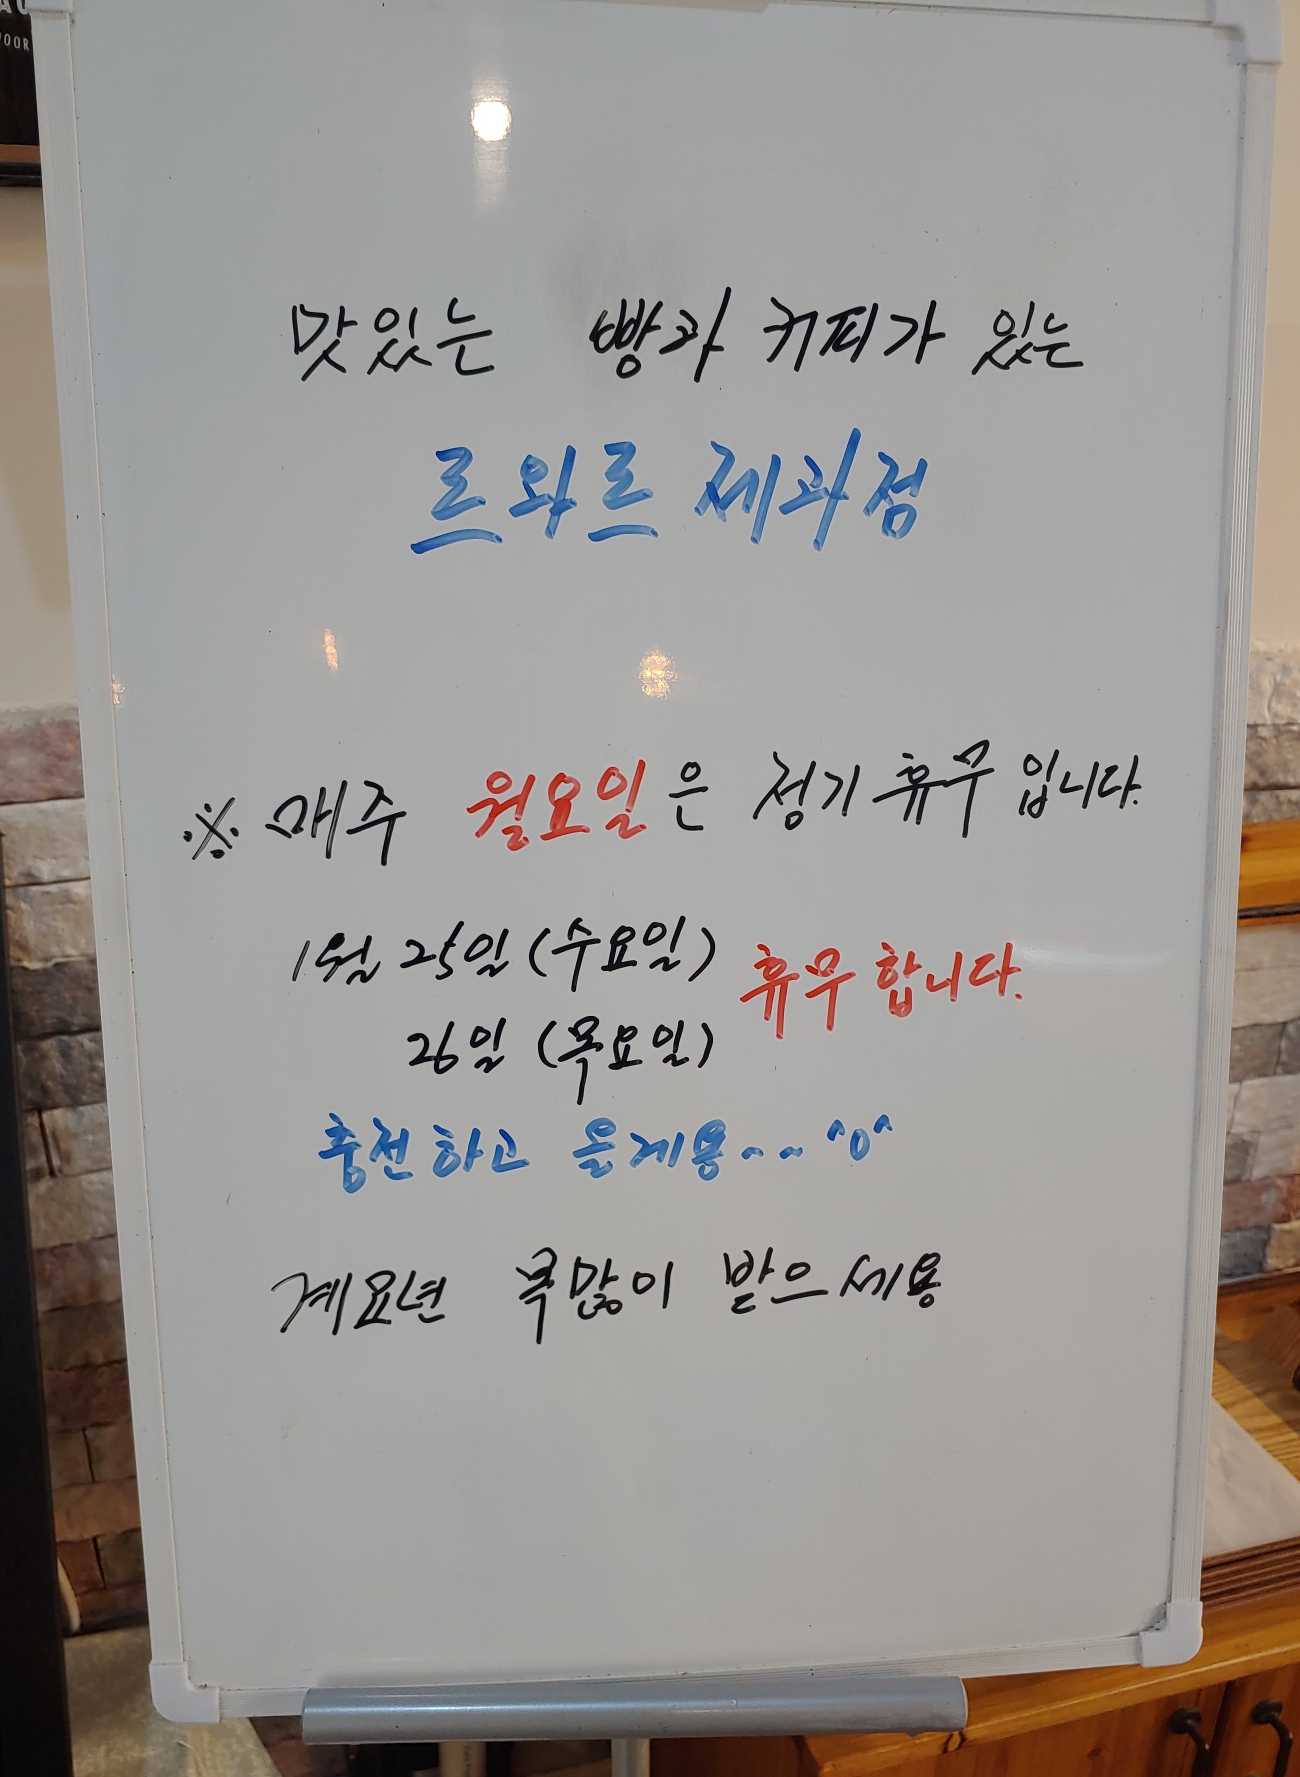 맛있는 빵과 커피가 있는
르와르 제과점
※ 매주 월요일은 정기휴무입니다.
1월 25일 (수요일) 휴무합니다.
26일 (목요일)
충전하고 올게용~~ ^o^
계묘년 복많이 받으세용